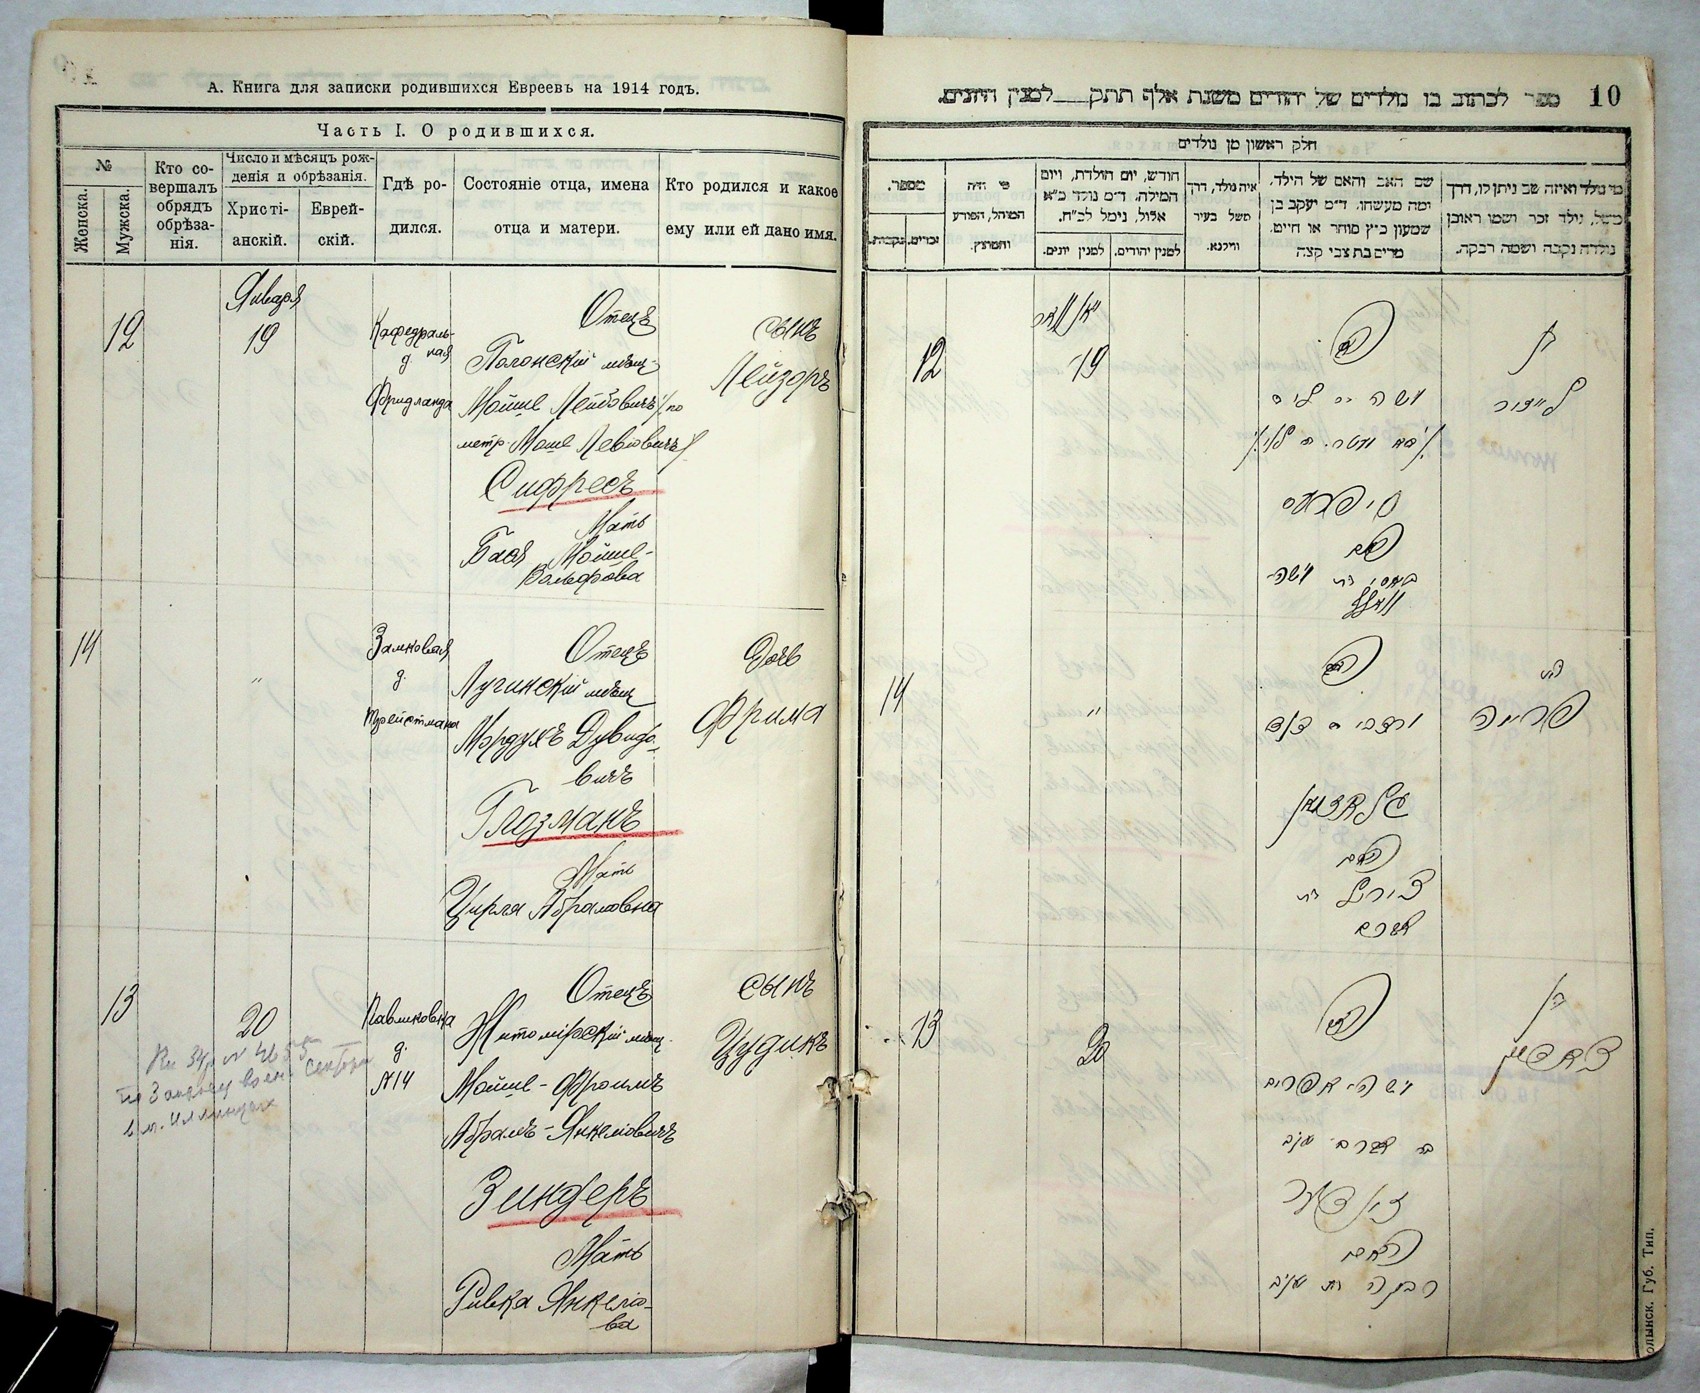 А. Книга для записки родившихся Евреевъ на 1914 годъ.
Часть I. О родившихся.
№
Женска.
Мужска.
Кто со-
вершалъ
обрядъ
обрѣза-
нія.
Число и мѣсяцъ рож-
денія и обрѣзанія.
Христі-
анскій.
Еврей-
скій.
Гдѣ ро-
дился.
Состояніе отца, имена
отца и матери.
Кто родился и какое
ему или ей дано имя.
12
Января
19
Кафедраль-
ная
д.
Фридланда
Отецъ
Полонскій мѣщ.
Мойше Лейбовичъ /по
метр. Моше Левіовичъ/
Сифресъ
Мать
Бася Мойше-
Вольфова
сынъ
Лейзоръ
14
"
Замковая
д.
Отецъ
Лугинскій мѣщ.
Мордухъ Дувидо-
вичъ
Глозманъ
Мать
Цирля Абрамовна
Дочь
Фрима
13
20
Павликовка
д.
№14
Отецъ
Житомірскій мѣщ.
Мойше-Фроимъ
Абрамъ-Янкелювичъ
Зиндеръ
Мать
Ривка Янкеліо-
ва
сынъ
Цудикъ
ספר לכתוב בו נולדים של יהודים משנת אלף תתק למנין היונים.
10
חלק ראשון מן נולדים
מספר.
נקבות.
זכרים.
מי היה
המוהל, הפורע
והמוצץ.
חודש, יום הולדת, ויום
המילה, ד״מ נולד מ״א
אלול, נימל לכ״ח.
למנין יונים.
למנין יהודים.
איה נולד, דרך
משל בעיר
ווילנא.
שם האב והאם של הילד,
ומה מעשהו. ד״מ יעקב בן
שמעון כ״ץ סוחר או חייט.
מרים בת צבי קצה
מי נולד ואיזה שם ניתן לו, דרך
משל, נולד זכר ושמו ראובן
נולדה נקבה ושמה רבקה.
12
יאנואר
19
האב
סיפרעס
האם
בן
לייזור
14
"
האב
מרדכי ב דוד
גלאזמאן
האם
צירל בת
אברם
בת
פרימה
13
20
האב
משה אפרים
בר אברם יעקב
זינדער
האם
רבקה בת יעקב
בן
צודיק
олынск. Губ. Тип.